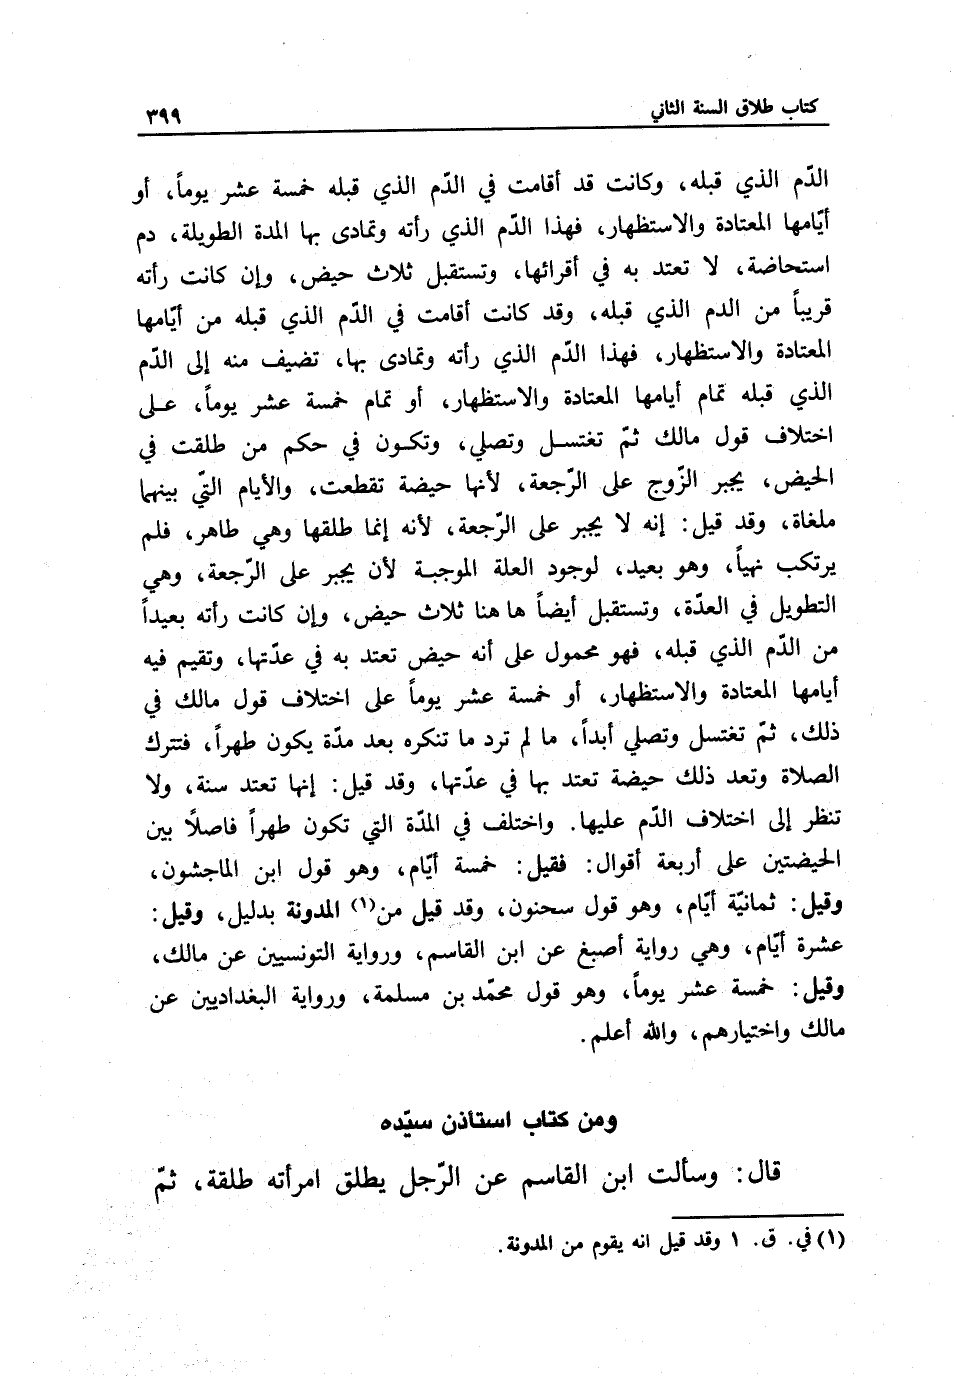 كتاب طلاق السنة الثاني ٣٩٩
الدّم الذي قبله، وكانت قد أقامت في الدّم الذي قبله خمسة عشر يوماً، أو
أيّامها المعتادة والاستظهار، فهذا الدّم الذي رأته وتمادى بها المدة الطويلة، دم
استحاضة، لا تعتد به في أقرائها، وتستقبل ثلاث حيض، وإن كانت رأته
قريباً من الدم الذي قبله، وقد كانت أقامت في الدّم الذي قبله من أيّامها
المعتادة والاستظهار، فهذا الدّم الذي رأته وتمادى بها، تضيف منه إلى الدّم
الذي قبله تمام أيامها المعتادة والاستظهار، أو تمام خمسة عشر يوماً، على
اختلاف قول مالك ثمّ تغتسل وتصلي، وتكون في حكم من طلقت في
الحيض، يجبر الزّوج على الرّجعة، لأنها حيضة تقطعت، والأيام التيّ بينهما
ملغاة، وقد قيل: إنه لا يجبر على الرّجعة، لأنه إنما طلقها وهي طاهر، فلم
يرتكب نهياً، وهو بعيد، لوجود العلة الموجبة لأن يجبر على الرّجعة، وهي
التطويل في العدّة، وتستقبل أيضاً ها هنا ثلاث حيض، وإن كانت رأته بعيداً
من الدّم الذي قبله، فهو محمول على أنه حيض تعتد به في عدّتها، وتقيم فيه
أيامها المعتادة والاستظهار، أو خمسة عشر يوماً على اختلاف قول مالك في
ذلك، ثمّ تغتسل وتصلي أبداً، ما لم ترد ما تنكره بعد مدّة يكون طهراً، فتترك
الصلاة وتعد ذلك حيضة تعتد بها في عدّتها، وقد قيل: إنها تعتد سنة، ولا
تنظر إلى اختلاف الدّم عليها. واختلف في المدّة التي تكون طهراً فاصلًا بين
الحيضتين على أربعة أقوال: فقيل: خمسة أيّام، وهو قول ابن الماجشون،
وقيل: ثمانيّة أيّام، وهو قول سحنون، وقد قيل من(١) المدونة بدليل، وقيل:
عشرة أيّام، وهي رواية أصبغ عن ابن القاسم، ورواية التونسيين عن مالك،
وقيل: خمسة عشر يوماً، وهو قول محمّد بن مسلمة، ورواية البغداديين عن
مالك واختيارهم، والله أعلم.
ومن كتاب استأذن سيّده
قال: وسألت ابن القاسم عن الرّجل يطلق امرأته طلقة، ثمّ
(١) في. ق. ١ وقد قيل انه يقوم من المدونة.